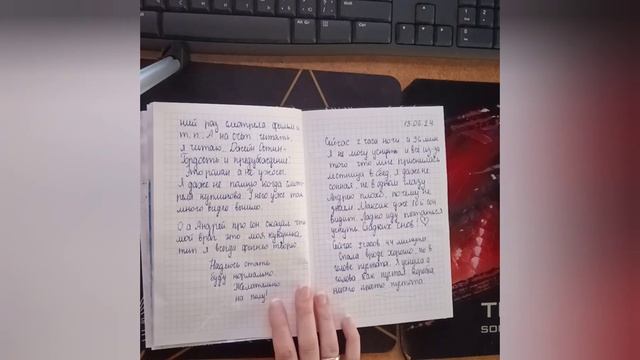 ний раз смотрела фильм и
т.п. А на счёт читать,
я читаю. Джейн Остин-
Гордость и предубеждение.
Это роман а не ужасы.
Я даже не помню когда смот-
рела куплинова. У него уже так
много видео вышло.
О а Андрей про сон сказал что
мой враг это моя кукушка,
тип я всегда фигню творю.
Надеюсь спать
буду нормально.
Желательно
на полу!
13.06.24
Сейчас 2 часа ночи и 36 мин.
Я не могу уснуть и все из-за
того что мне приснились
лестницы в ад. Я даже не
сонная. не в одном глазу
Андрею плохо. почему не
знаем Максик уже 10й сон
видит. Ладно иду пытаться
уснуть. Сладких снов!
Сейчас 7 часов 44 минуты
Спала вроде хорошо. но в
голове пустота. Я уснула а
голова как пустая коробка
просто пустота.